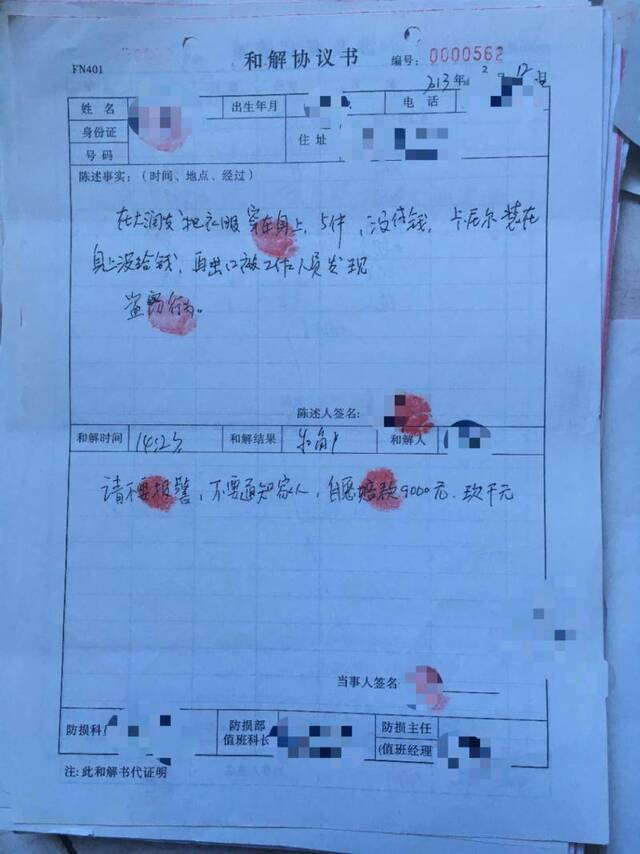 FN401
和解协议书
编号: 0000562
2013年 2 12
姓名 出生年月 电话
身份证号码 住址
陈述事实:(时间、地点、经过)
在大润发把衣服穿在身上,5件,没付钱,卡 尔装在
身上没给钱,再出口被工作人员发现
盗窃行为。
陈述人签名:
和解时间 14:52分 和解结果 和解人
请不要报警,不要通知家人,自愿赔款9000元.玖千元
当事人签名
防损科 防损部值班科长 防损主任(值班经理
注:此和解书代证明